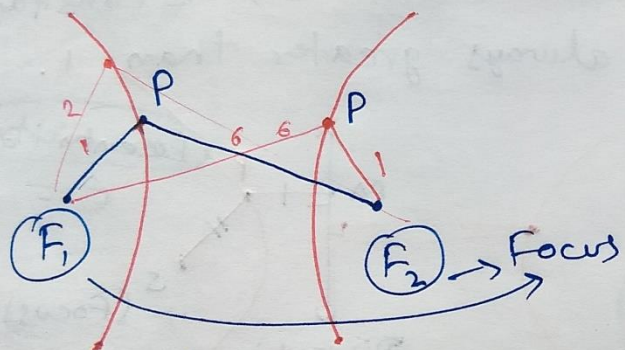 P
P
2
1
6
6
1
F₁
F₂ → Focus